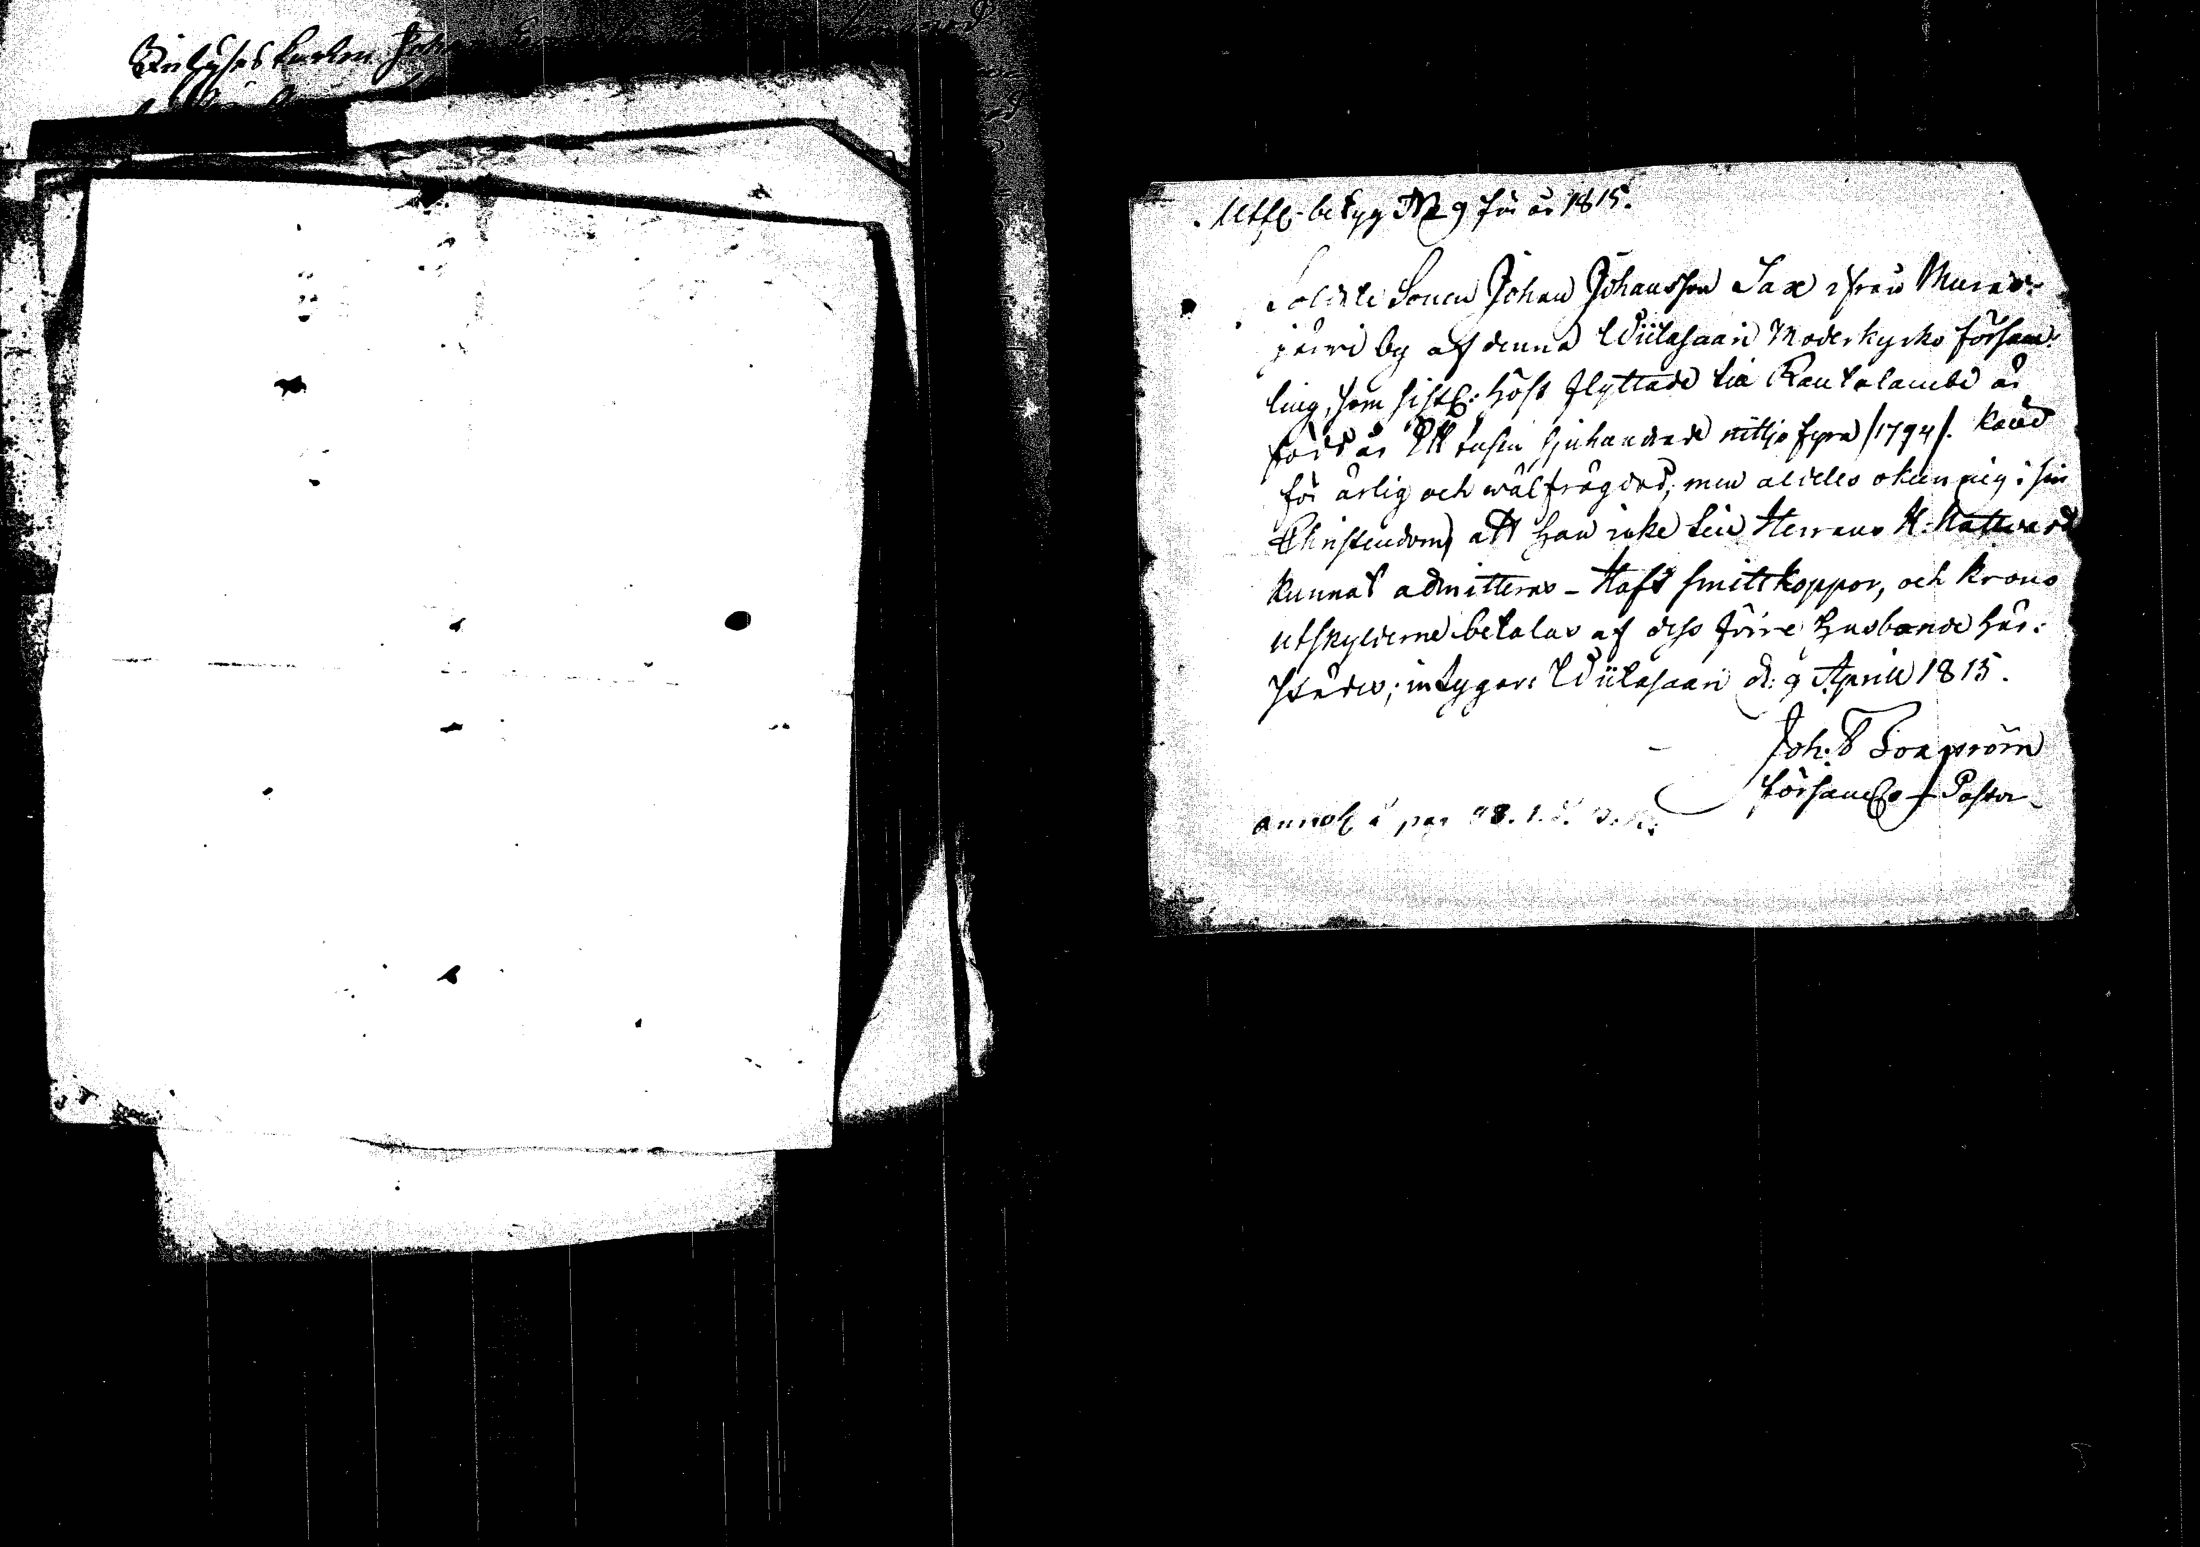 Utfl. betyg No 9 för år 1815.
Soldate Sonen Johan Johansson Sax ifrån Muras-
järvi by af denna Wiitasaari Moderkyrko försam-
ling, som sistl: höst flyttade till Rautalambi är
född år Ett tusen sjuhundrade nittjo fyra /1794/. känd
för ärlig och wälfrägdad; men aldeles okunnig i sin
Christendom, att han icke till Herrans H: Nattward
kunnat admitteras – Haft smittkoppor, och krono
utskylderne betalas af dess förre husbonde här-
städes; intygar: Wiitasaari d: 9 April 1815.
Joh:
församl:s Pastor
annot: å pag 98.